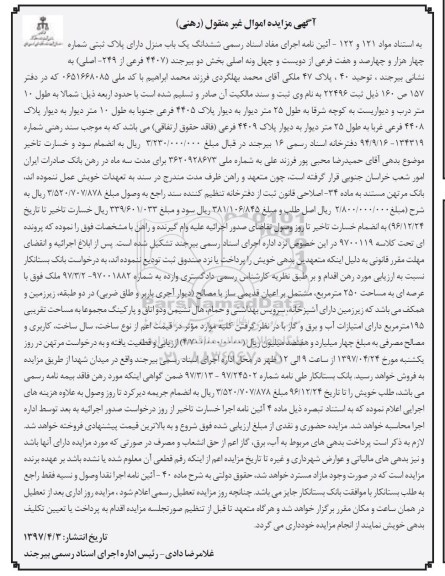 آگهی مزایده اموال غیر منقول (رهنی)
به استناد مواد ۱۲۱ و ۱۲۲ - آئین نامه اجرای مفاد اسناد رسمی ششدانگ یک باب منزل دارای پلاک ثبتی شماره
چهار هزار و چهارصد و هفت فرعی از دویست و چهل ونه اصلی بخش دو بیرجند (۴۴۰۷ فرعی از ۲۴۹- اصلی) به
نشانی بیرجند ، توحید ۴۰ ، پلاک ۴۷ ملکی آقای محمد بهلگردی فرزند محمد ابراهیم با کد ملی ۰۶۵۱۶۶۸۰۸۵ که در دفتر
۱۵۷ ص ۱۶۰ ذیل ثبت ۲۲۴۹۶ به نام وی ثبت و سند مالکیت آن صادر و تسلیم شده است با حدود اربعه ذیل: شمالا به طول ۱۰
متر درب و دیواریست به کوچه شرقا به طول ۲۵ متر دیوار به دیوار پلاک ۴۴۰۵ فرعی جنوبا به طول ۱۰ متر دیوار به دیوار پلاک
۴۴۰۸ فرعی غربا به طول ۲۵ متر دیوار به دیوار پلاک ۴۴۰۹ فرعی (فاقد حقوق ارتفاقی) می باشد که به موجب سند رهنی شماره
۱۳۴۳۱۹- ۹۴/۹/۱۶ دفترخانه اسناد رسمی ۱۶ بیرجند در قبال مبلغ ۳/۲۳۰/۰۰۰/۰۰۰ ریال به انضمام سود و خسارت تاخیر
موضوع بدهی آقای حمیدرضا محبی پور فرزند علی به شماره ملی ۳۶۲۰۹۲۸۶۷۳ برای مدت سه ماه در رهن بانک صادرات ایران
امور شعب خراسان جنوبی قرار گرفته است، چون متعهد و راهن ظرف مدت مندرج در سند به تعهدات خویش عمل ننموده اند،
بانک مرتهن مستند به ماده ۳۴- اصلاحی قانون ثبت از دفترخانه تنظیم کننده سند راجع به وصول مبلغ ۳/۵۲۰/۷۰۷/۸۷۸ ریال به
شرح (مبلغ ۲/۸۰۰/۰۰۰/۰۰۰ ریال اصل طلب و مبلغ ۳۸۱/۱۰۶/۸۴۵ ریال سود و مبلغ ۳۳۹/۶۰۱/۰۳۳ ریال خسارت تاخیر تا تاریخ
۹۶/۱۲/۲۴) به انضمام خسارت تاخیر تا روز وصول تقاضای صدور اجرائیه علیه وام گیرنده و راهن با مشخصات فوق را نموده که پرونده
ای تحت کلاسه ۹۷۰۰۱۱۹ در این خصوص نزد اداره اجرای اسناد رسمی بیرجند تشکیل شده است. پس از ابلاغ اجرائیه و انقضای
مهلت مقرر قانونی به دلیل اینکه متعهدین بدهی خویش را پرداخت یا نزد صندوق ثبت تودیع ننموده اند، به درخواست بانک بستانکار
نسبت به ارزیابی مورد رهن اقدام و بر طبق نظریه کارشناس رسمی دادگستری وارده به شماره ۹۷۰۰۱۸۸۲- ۹۷/۳/۲ ملک فوق با
عرصه ای به مساحت ۲۵۰ مترمربع، مشتمل بر اعیان قدیمی ساز با مصالح (دیوار آجری باربر و طاق ضربی) در دو طبقه، زیرزمین و
همکف می باشد که زیرزمین دارای آشپزخانه، سرویس بهداشتی و حمام، هال نشیمن و دو اتاق و پارکینگ مجموعا به مساحت تقریبی
۱۹۵مترمربع دارای امتیازات آب و برق و گاز با در نظر گرفتن کلیه موارد موثر در قیمت اعم از نوع ساخت، سال ساخت، کاربری و
مصالح مصرفی به مبلغ چهار میلیارد و هفتصد میلیون ریال (۴/۷۰۰/۰۰۰/۰۰۰) ارزیابی و قطعیت یافته و به درخواست مرتهن در روز
یکشنبه مورخ ۱۳۹۷/۰۴/۲۴ از ساعت ۹ الی ۱۲ ظهر در محل اداره اجرای اسناد رسمی بیرجند واقع در میدان شهدا از طریق مزایده
به فروش خواهد رسید. بانک بستانکار طی نامه شماره ۹۷/۲۴۵۰۲- ۹۷/۳/۱۳ ضمن گواهی اینکه مورد رهن فاقد بیمه نامه رسمی
می باشد، طلب خویش را تا تاریخ ۹۶/۱۲/۲۴ مبلغ ۳/۵۲۰/۷۰۷/۸۷۸ ریال به انضمام جریمه دیرکرد تا روز وصول به علاوه هزینه های
اجرایی اعلام نموده که به استناد تبصره ذیل ماده ۴ آئین نامه اجرا خسارت تاخیر از روز درخواست صدور اجرائیه به بعد توسط اداره
اجرا محاسبه خواهد شد. مزایده حضوری و نقدی از مبلغ ارزیابی شده فوق شروع و به بالاترین قیمت پیشنهادی فروخته خواهد شد.
لازم به ذکر است پرداخت بدهی های مربوط به آب، برق، گاز اعم از حق انشعاب و مصرف در صورتی که مورد مزایده دارای آنها باشد
و نیز بدهی های مالیاتی و عوارض شهرداری و غیره تا تاریخ مزایده اعم از اینکه رقم قطعی آن معلوم شده یا نشده باشد بر عهده برنده
مزایده است که در صورت وجود مازاد مسترد خواهد شد، حقوق دولتی به شرح ماده ۴۰- آئین نامه اجرا نقدا وصول و نسیه فقط راجع
به طلب بستانکار با موافقت بانک بستانکار جایز می باشد. چنانچه روز مزایده تعطیل رسمی اعلام شود ، مزایده روز اداری بعد از تعطیل
در همان ساعت و مکان مقرر برگزار خواهد شد و هرگاه متعهد تا قبل از تنظیم صورتجلسه مزایده اقدام به پرداخت یا تعیین تکلیف
بدهی خویش نمایند از انجام مزایده خودداری می گردد.
تاریخ انتشار: ۱۳۹۷/۴/۳
غلامرضا دادی - رئیس اداره اجرای اسناد رسمی بیرجند